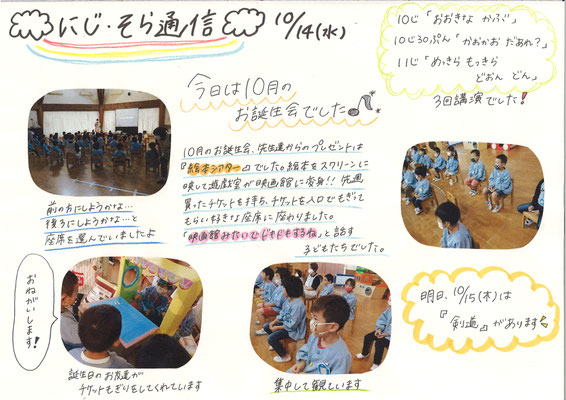 にじ・そら通信 10/14(水)
10じ「おおきな かぶ」
10じ30ぷん「かおかお だあれ?」
11じ「めっきら もっきら
どおん どん」
3回講演でした!
今日は10月の
お誕生会でした
10月のお誕生会、先生達からのプレゼントは
『絵本シアター』でした。絵本をスクリーンに
映して遊戯室が映画館に変身!!先週
買ったチケットを持ち、チケットを入口でもぎって
もらい好きな座席に座りました。
「映画館みたいでドキドキするね」と話す
子どもたちでした。
前の方にしようかな…
後ろにしようかな…と
座席を選んでいましたよ
おねがいします!
誕生日のお友達が
チケットもぎりをしてくれています
集中して観ています
明日、10/15(木)は
『剣道』があります